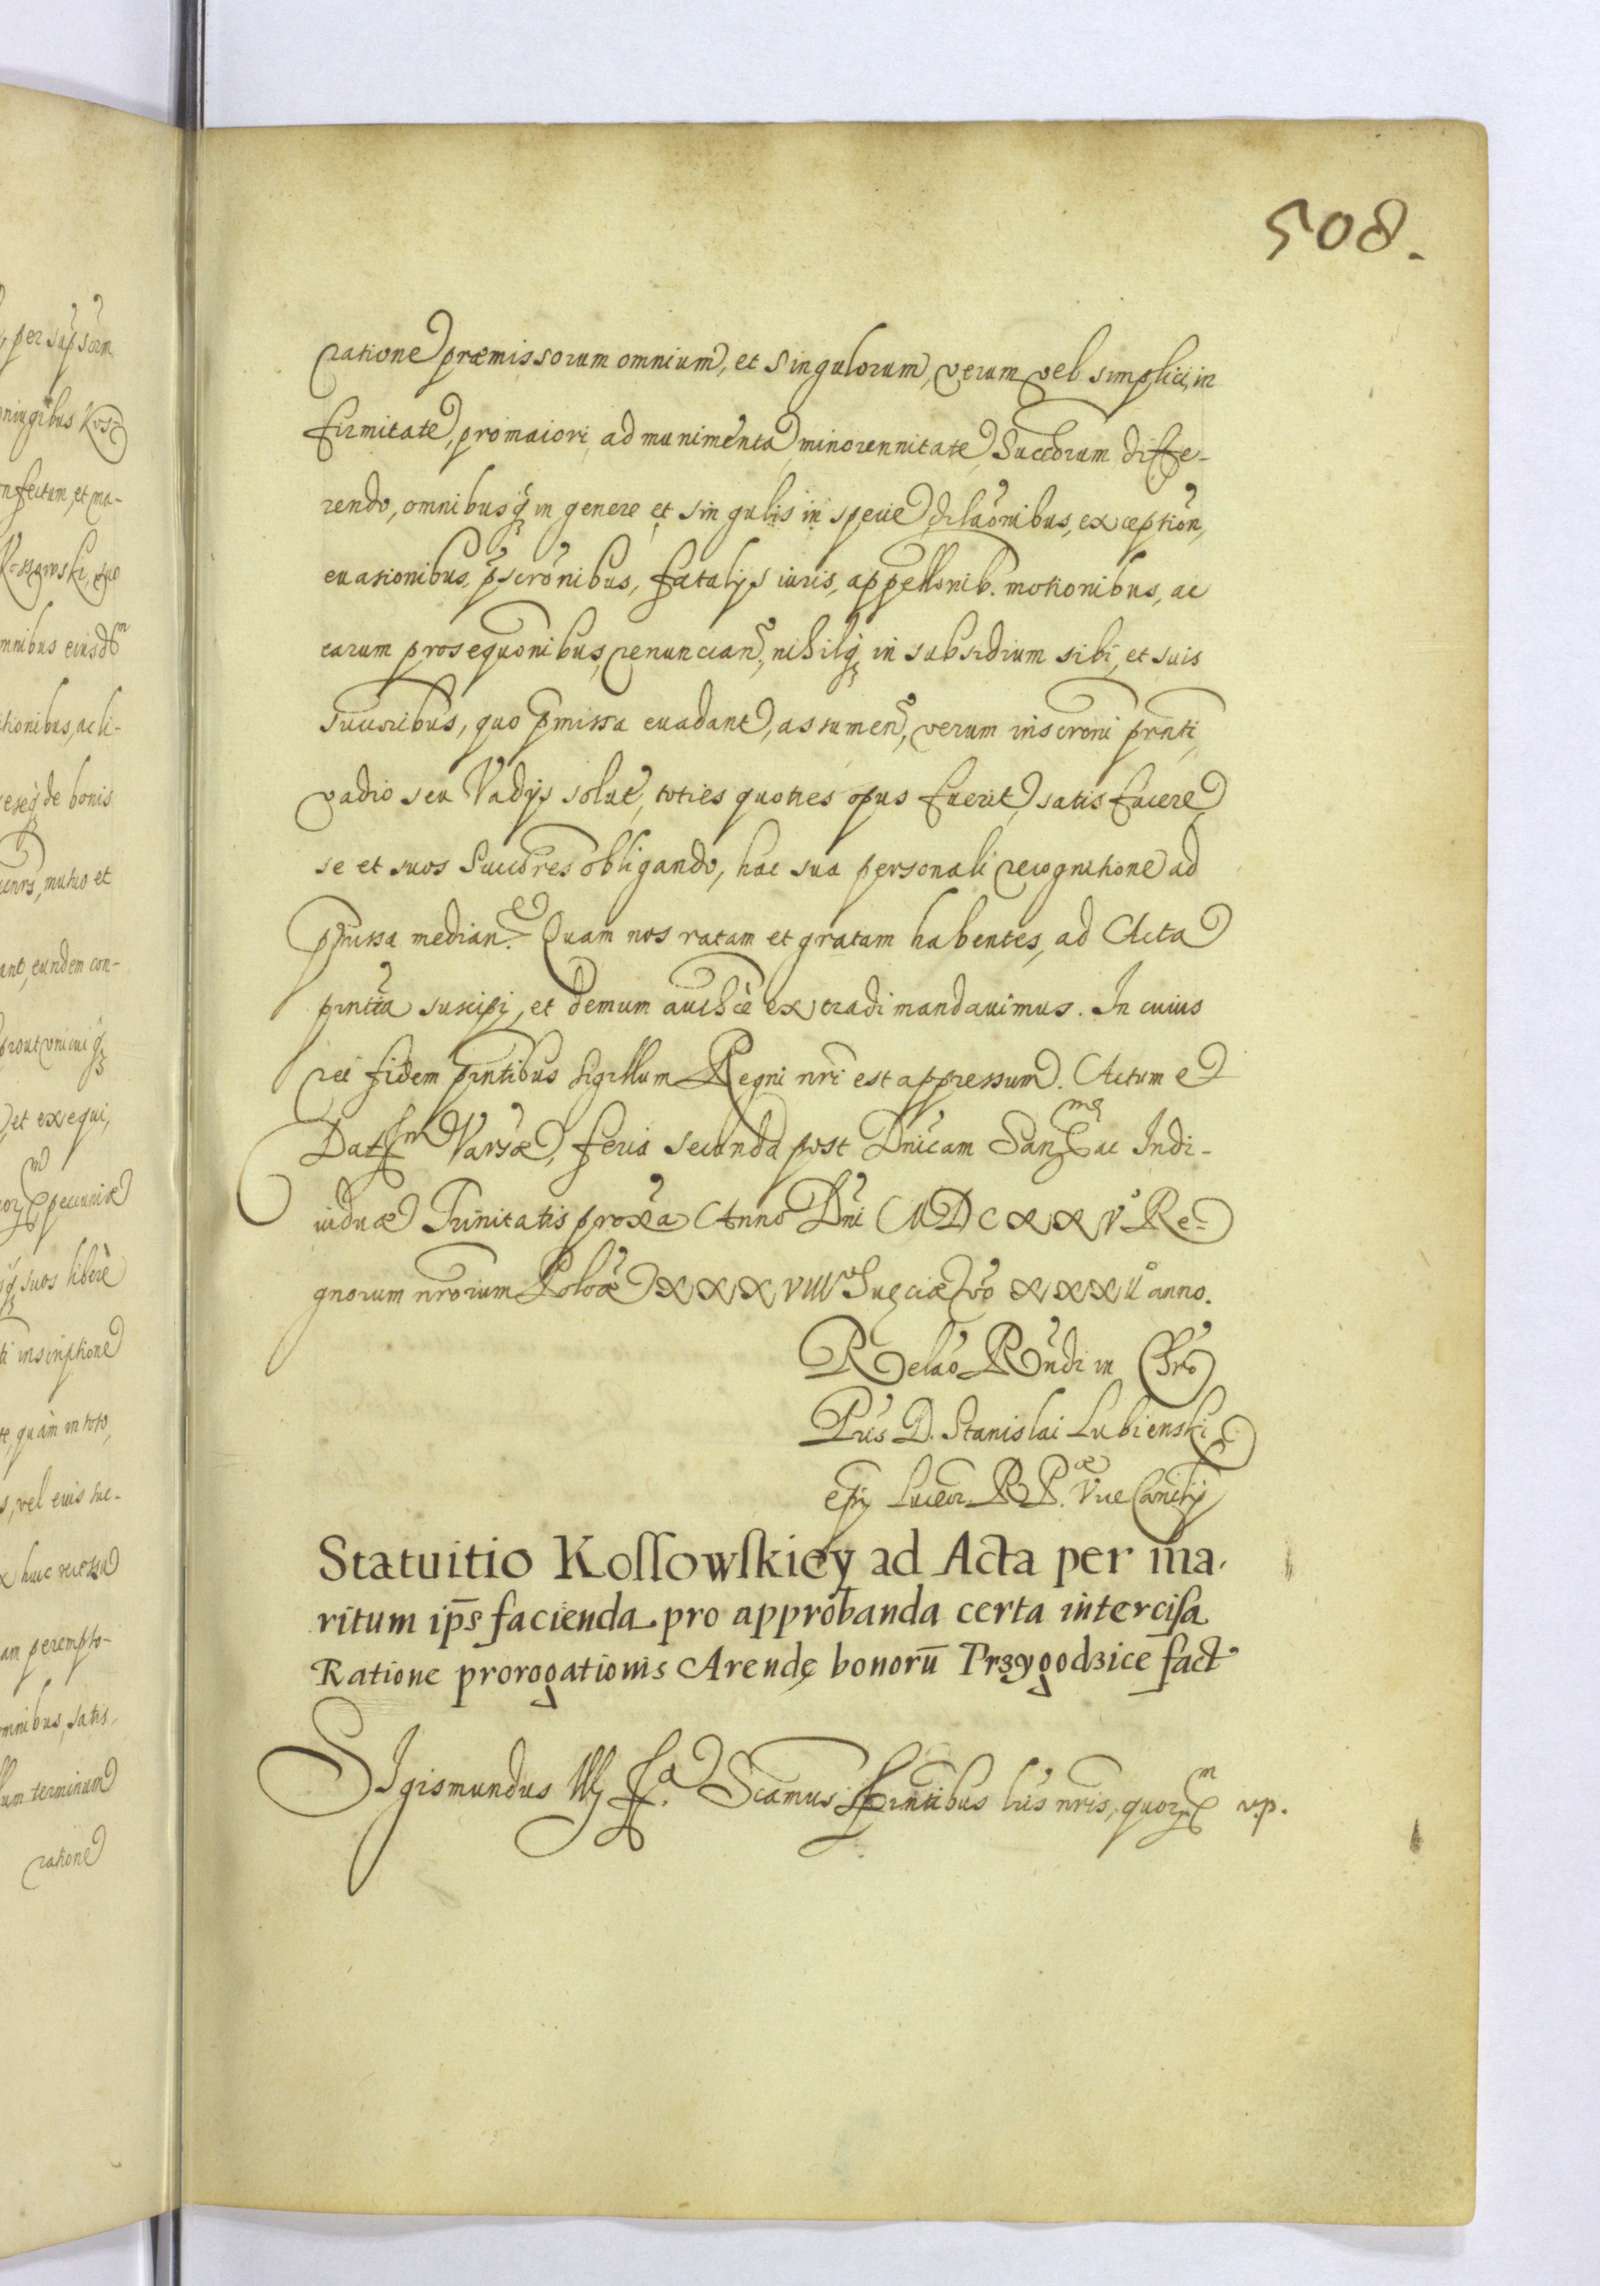 508.
ratione præmissorum omnium, et singulorum, verum vel simplici, in
firmitate, pro maiori, ad munimenta, minorennitate Succorum diffe-
rendo, omnibusq in genere et singulis in specie dilaonibus, exception,
euasionibus, pscronibus, fatalijs iuris, appellonib. motionibus, ac
earum prosequonibus, renuncian, nihilq in subsidium sibi, et suis
succoribus, quo pmissa euadant, assumen, verum inscroni prnti,
vadio seu Vadijs solut, toties quoties opus fuerit, satis facere,
se et suos Succores obligando, hac sua personali recognitione ad
pmissa median. Quam nos ratam et gratam habentes, ad Acta
prntia suscipi, et demum authce extradi mandauimus. In cuius
rei fidem prntibus Sigillum Regni nri est appressum. Actum et
Datm Varsæ, feria secunda post Dnicam Sanmæ ac Indi-
uiduæ Trinitatis proxa Anno Dni MDCXXV Re-
gnorum nrorum Poloæ XXXVIII Sueciæ vo XXXII anno.
Relao Rndi in Chro
Pris D. Stanislai Lubienski
epi Luceor R P. Vice Cancrij
Statuitio Kossowskiey ad Acta per ma.
ritum ips facienda pro approbanda certa intercisa
Ratione prorogationis Arendę bonorū Przygodzice fact
SIgismundus IIIj &a Scamus prntibus lris nris, quorm vp.
per supscrm
oniugibus Kos-
nfectum, et ma-
Kossowski, suo
omnibus eiusdm
itionibus, ac li-
eseq de bonis
mutuo et
ant, eundem con-
prout vnicuiq
et exequi,
pecuniæ
q suos liberè
ti inscriptione
te, quàm in toto,
s, vel eius suc-
huic
am perempto-
omnibus, satis-
lum terminum
ratione